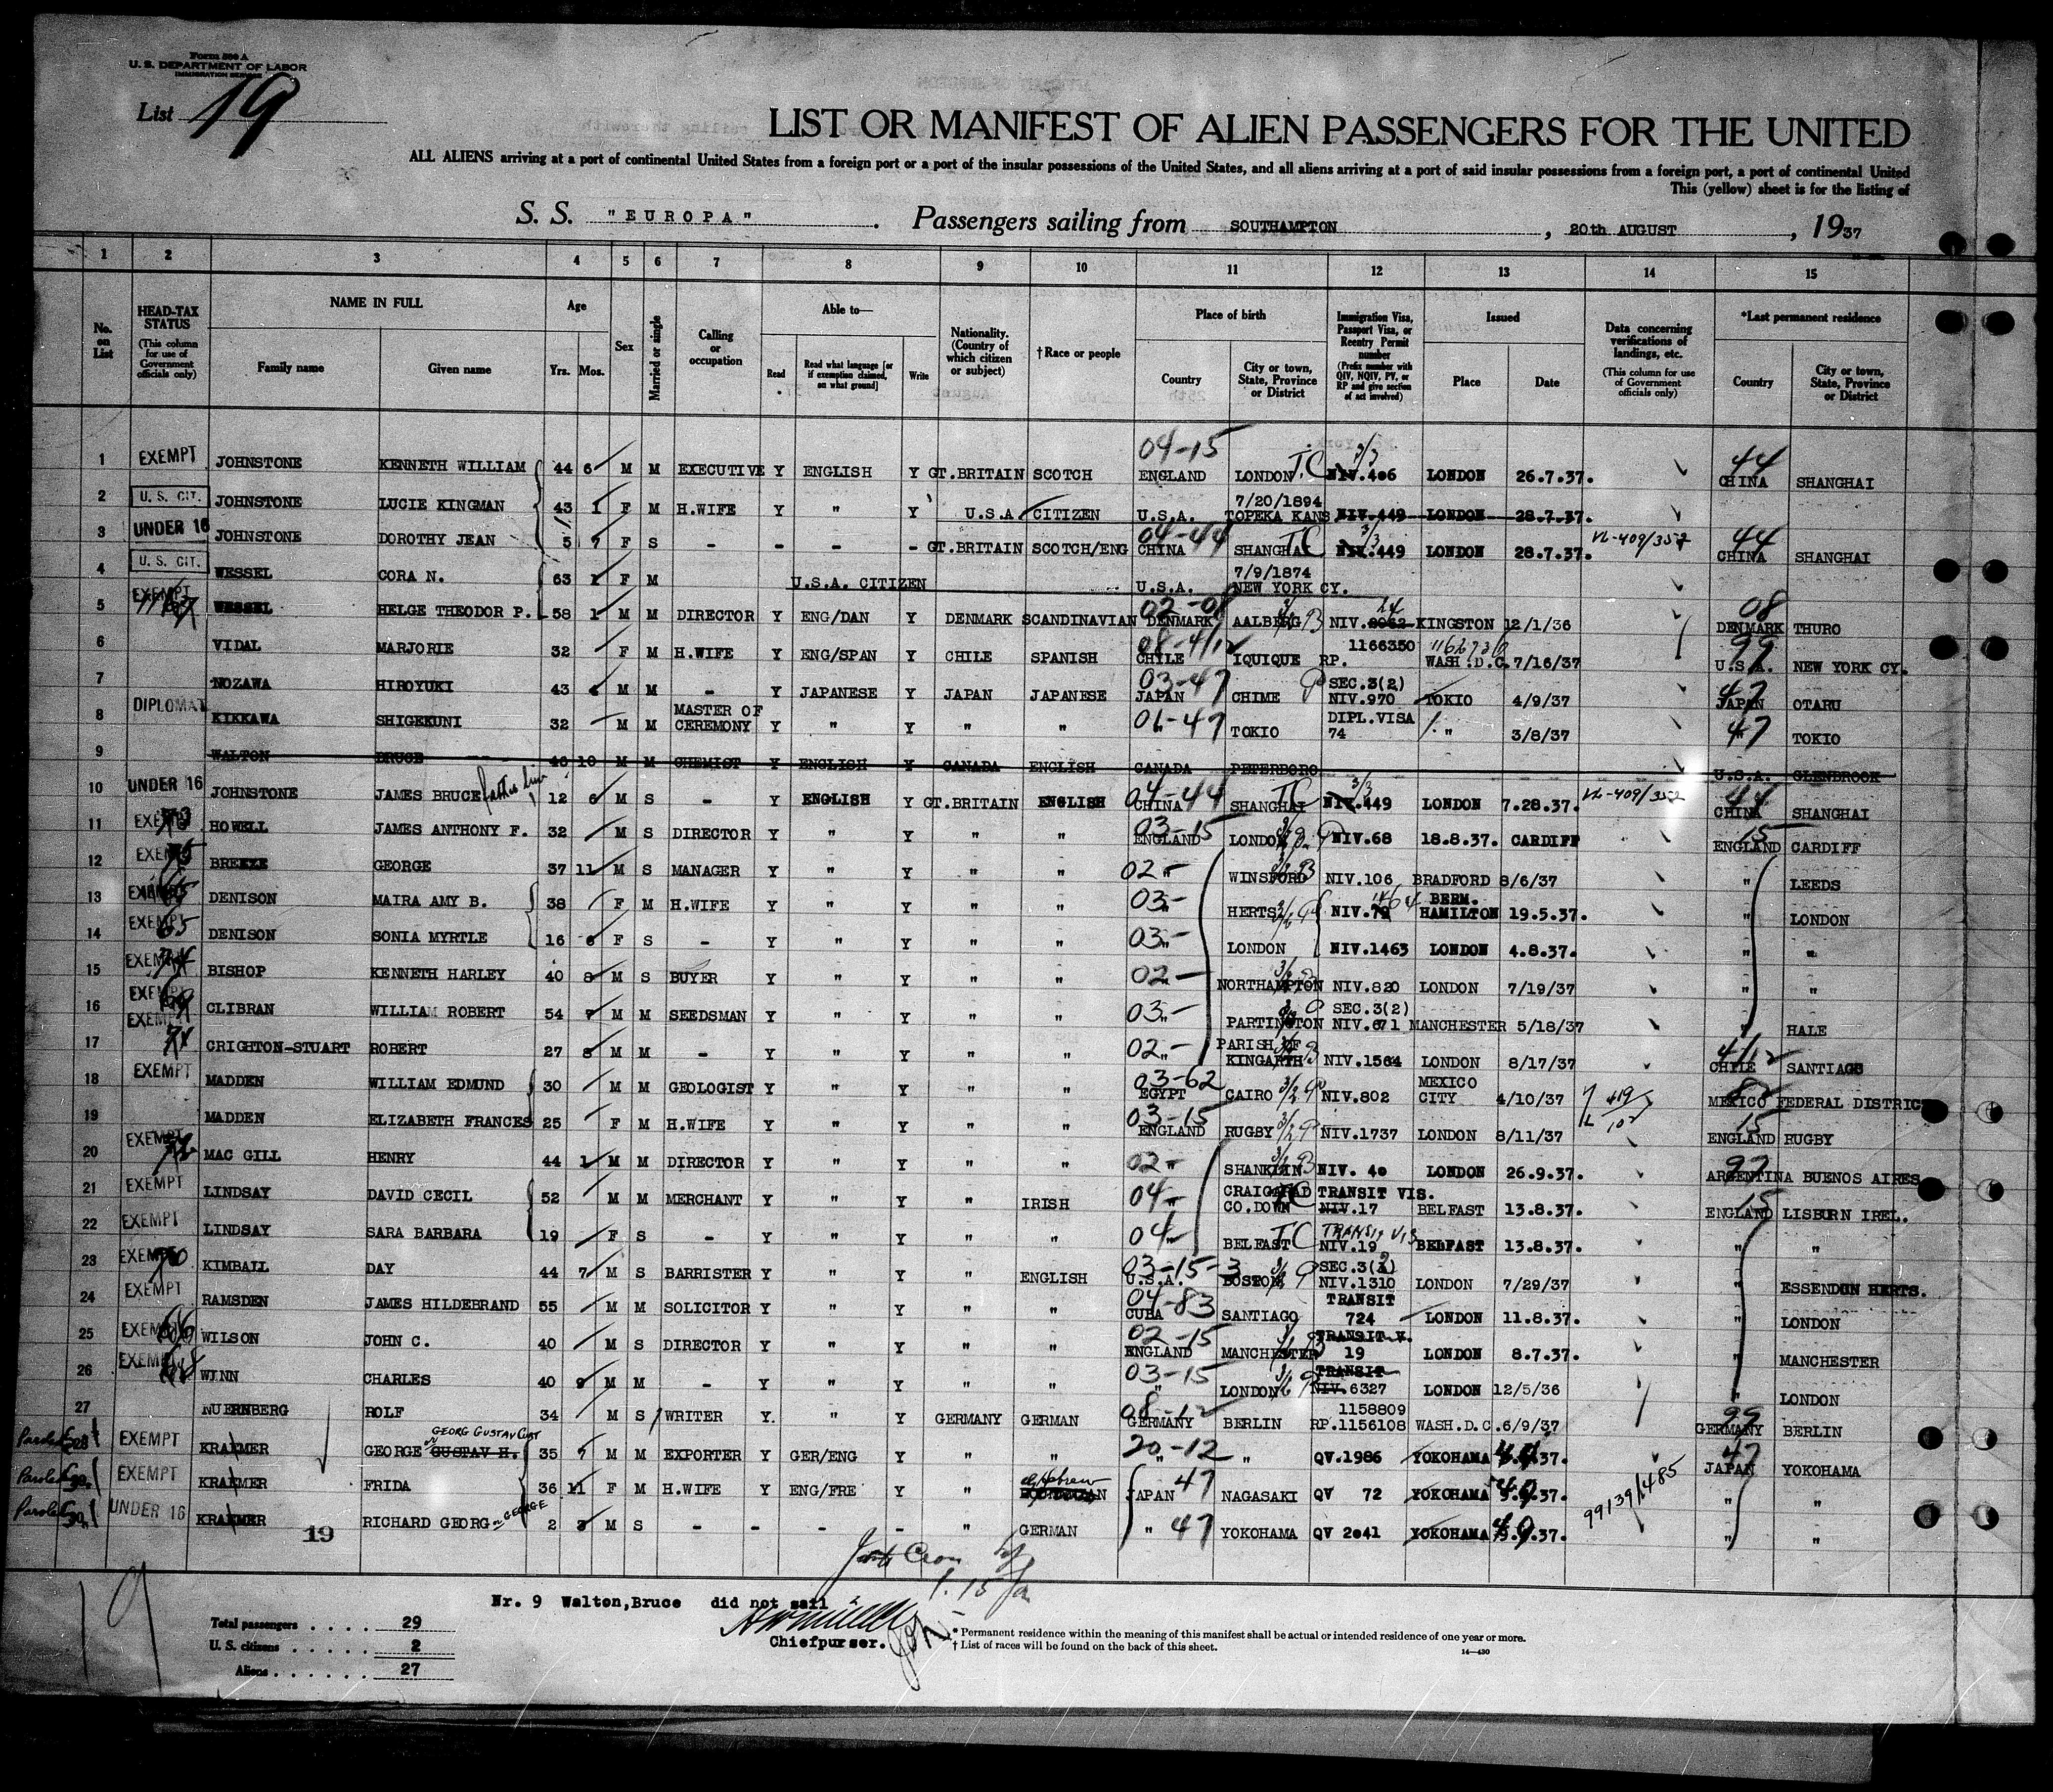 Form 500 A
U. S. DEPARTMENT OF LABOR
IMMIGRATION SERVICE
List 19
LIST OR MANIFEST OF ALIEN PASSENGERS FOR THE UNITED
ALL ALIENS arriving at a port of continental United States from a foreign port or a port of the insular possessions of the United States, and all aliens arriving at a port of said insular possessions from a foreign port, a port of continental United
This (yellow) sheet is for the listing of
S. S. "EUROPA" . Passengers sailing from SOUTHAMPTON , 20th AUGUST , 1937
1 2 3 4 5 6 7 8 9 10 11 12 13 14 15
No. on List
HEAD-TAX STATUS (This column for use of Government officials only)
NAME IN FULL Family name Given name
Age Yrs. Mos.
Sex
Married or single
Calling or occupation
Able to— Read Read what language [or if exemption claimed, on what ground] Write
Nationality. (Country of which citizen or subject)
†Race or people
Place of birth Country City or town, State, Province or District
Immigration Visa, Passport Visa, or Reentry Permit number (Prefix number with QIV, NQIV, PV, or RP and give section of act involved)
Issued Place Date
Data concerning verifications of landings, etc. (This column for use of Government officials only)
*Last permanent residence Country City or town, State, Province or District
1 EXEMPT JOHNSTONE KENNETH WILLIAM 44 6 M M EXECUTIVE Y ENGLISH Y GT.BRITAIN SCOTCH 04-15 ENGLAND LONDON TC 3/3 NIV.406 LONDON 26.7.37. 44 CHINA SHANGHAI
2 U. S. CIT. JOHNSTONE LUCIE KINGMAN 43 1 F M H.WIFE Y " Y U.S.A. CITIZEN U.S.A. 7/20/1894 TOPEKA KANS NIV.449 LONDON 28.7.37.
3 UNDER 16 JOHNSTONE DOROTHY JEAN 5 7 F S - - - - GT.BRITAIN SCOTCH/ENG 04-44 CHINA SHANGHAI TC 3/3 NIV.449 LONDON 28.7.37. VL-409/357 44 CHINA SHANGHAI
4 U. S. CIT. WESSEL CORA N. 63 1 F M U.S.A. CITIZEN U.S.A. 7/9/1874 NEW YORK CY.
5 EXEMPT WESSEL HELGE THEODOR P. 58 1 M M DIRECTOR Y ENG/DAN Y DENMARK SCANDINAVIAN 02-08 DENMARK AALBERG NIV. 24 KINGSTON 12/1/36 08 DENMARK THURO
6 VIDAL MARJORIE 32 F M H.WIFE Y ENG/SPAN Y CHILE SPANISH 08-4/12 CHILE IQUIQUE RP. 1166350 WASH.D.C. 7/16/37 99 U.S.A. NEW YORK CY.
7 NOZAWA HIROYUKI 43 M M - Y JAPANESE Y JAPAN JAPANESE 03-47 JAPAN CHIME SEC.3(2) NIV.970 TOKIO 4/9/37 47 JAPAN OTARU
8 DIPLOMAT KIKKAWA SHIGEKUNI 32 M M MASTER OF CEREMONY Y " Y " " 01-47 TOKIO DIPL.VISA 74 " 3/8/37 47 TOKIO
9 WALTON BRUCE 46 10 M M CHEMIST Y ENGLISH Y CANADA ENGLISH CANADA PETERBORO U.S.A. GLENBROOK
10 UNDER 16 JOHNSTONE JAMES BRUCE 12 6 M S - Y ENGLISH Y GT.BRITAIN ENGLISH 04-44 CHINA SHANGHAI TC 3/3 NIV.449 LONDON 7.28.37. VL-409/352 44 CHINA SHANGHAI
11 EXEMPT HOWELL JAMES ANTHONY F. 32 M S DIRECTOR Y " Y " " 03-15 ENGLAND LONDON NIV.68 18.8.37. CARDIFF 15 ENGLAND CARDIFF
12 EXEMPT BREEZE GEORGE 37 11 M S MANAGER Y " Y " " 02- " WINSFORD NIV.106 BRADFORD 8/6/37 " LEEDS
13 EXEMPT DENISON MAIRA AMY B. 38 F M H.WIFE Y " Y " " 03- HERTS NIV. 1464 BERM. HAMILTON 19.5.37. " LONDON
14 EXEMPT 65 DENISON SONIA MYRTLE 16 6 F S - Y " Y " " 03- " LONDON NIV.1463 LONDON 4.8.37. " "
15 EXEMPT BISHOP KENNETH HARLEY 40 8 M S BUYER Y " Y " " 02- NORTHAMPTON NIV.820 LONDON 7/19/37 " "
16 EXEMPT 69 CLIBRAN WILLIAM ROBERT 54 7 M M SEEDSMAN Y " Y " " 03- " PARTINGTON SEC.3(2) NIV.671 MANCHESTER 5/18/37 " HALE
17 EXEMPT 71 CRIGHTON-STUART ROBERT 27 8 M M - Y " Y " " 02- " PARISH OF KINGARTH NIV.1564 LONDON 8/17/37 4/12 CHILE SANTIAGO
18 EXEMPT MADDEN WILLIAM EDMUND 30 M M GEOLOGIST Y " Y " " 03-62 EGYPT CAIRO NIV.802 MEXICO CITY 4/10/37 MEXICO FEDERAL DISTRICT
19 MADDEN ELIZABETH FRANCES 25 F M H.WIFE Y " Y " " 03-15 ENGLAND RUGBY NIV.1737 LONDON 8/11/37 15 ENGLAND RUGBY
20 EXEMPT 72 MAC GILL HENRY 44 1 M M DIRECTOR Y " Y " " 02- " SHANKLIN NIV. 40 LONDON 26.9.37. 97 ARGENTINA BUENOS AIRES
21 EXEMPT LINDSAY DAVID CECIL 52 M M MERCHANT Y " Y " IRISH 04- " CO.DOWN TC TRANSIT VIS. NIV.17 BELFAST 13.8.37. 15 ENGLAND LISBURN IREL.
22 EXEMPT LINDSAY SARA BARBARA 19 F S - Y " Y " 04- BELFAST TC TRANSIT VIS NIV.19 BELFAST 13.8.37. " "
23 EXEMPT 70 KIMBALL DAY 44 7 M S BARRISTER Y " Y " ENGLISH 03-15-3 U.S.A. BOSTON SEC.3(2) NIV.1310 LONDON 7/29/37 " ESSENDON HERTS.
24 EXEMPT RAMSDEN JAMES HILDEBRAND 55 M M SOLICITOR Y " Y " " 04-83 CUBA SANTIAGO TRANSIT 724 LONDON 11.8.37. LONDON
25 EXEMPT 66 WILSON JOHN C. 40 M S DIRECTOR Y " Y " " 02-15 ENGLAND MANCHESTER TRANSIT V. 19 LONDON 8.7.37. " MANCHESTER
26 EXEMPT 68 WINN CHARLES 40 9 M M - Y " Y " " 03-15 " LONDON TRANSIT NIV.6327 LONDON 12/5/36 " LONDON
27 NUERNBERG ROLF 34 M S WRITER Y. " Y GERMANY GERMAN 08-12 GERMANY BERLIN 1158809 RP.1156108 WASH.D.C. 6/9/37 99 GERMANY BERLIN
Paroled 28 EXEMPT KRAEMER GEORGE or GUSTAV H. GEORG GUSTAV CURT 35 7 M M EXPORTER Y GER/ENG Y " " 20-12 " " QV.1986 YOKOHAMA 37. 47 JAPAN YOKOHAMA
Paroled 29 EXEMPT KRAEMER FRIDA 36 11 F M H.WIFE Y ENG/FRE Y " Hebrew JAPAN 47 NAGASAKI QV 72 YOKOHAMA 37. 99139/485 " "
Paroled 30 UNDER 16 KRAEMER RICHARD GEORG or GEORGE 2 3 M S - - - - " GERMAN " 47 YOKOHAMA QV 2041 YOKOHAMA 37. " "
19
Nr. 9 Walton,Bruce did not sail
Chiefpurser.
Total passengers . . . . 29
U. S. citizens . . . . . 2
Aliens . . . . . . 27
* Permanent residence within the meaning of this manifest shall be actual or intended residence of one year or more.
† List of races will be found on the back of this sheet.
14—430